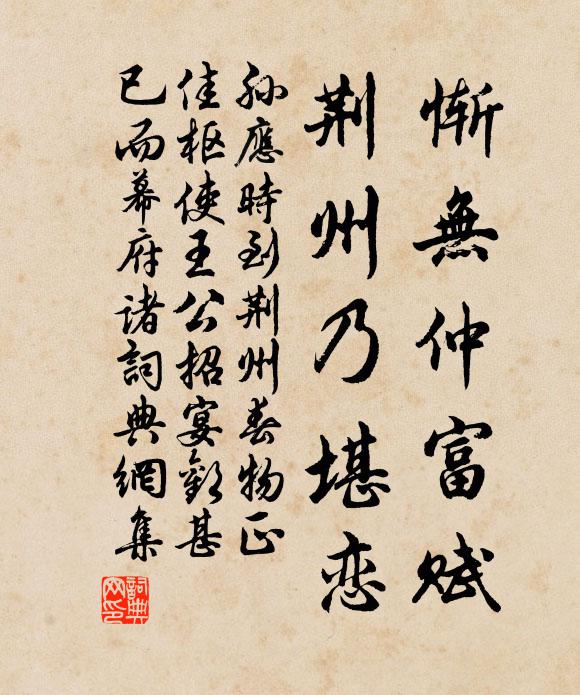 慚無仲富賦
荆州乃堪恋
孫應時到荆州春物正
佳枢使王公招宴歡甚
已而幕府诸詞典網集
詞典網印